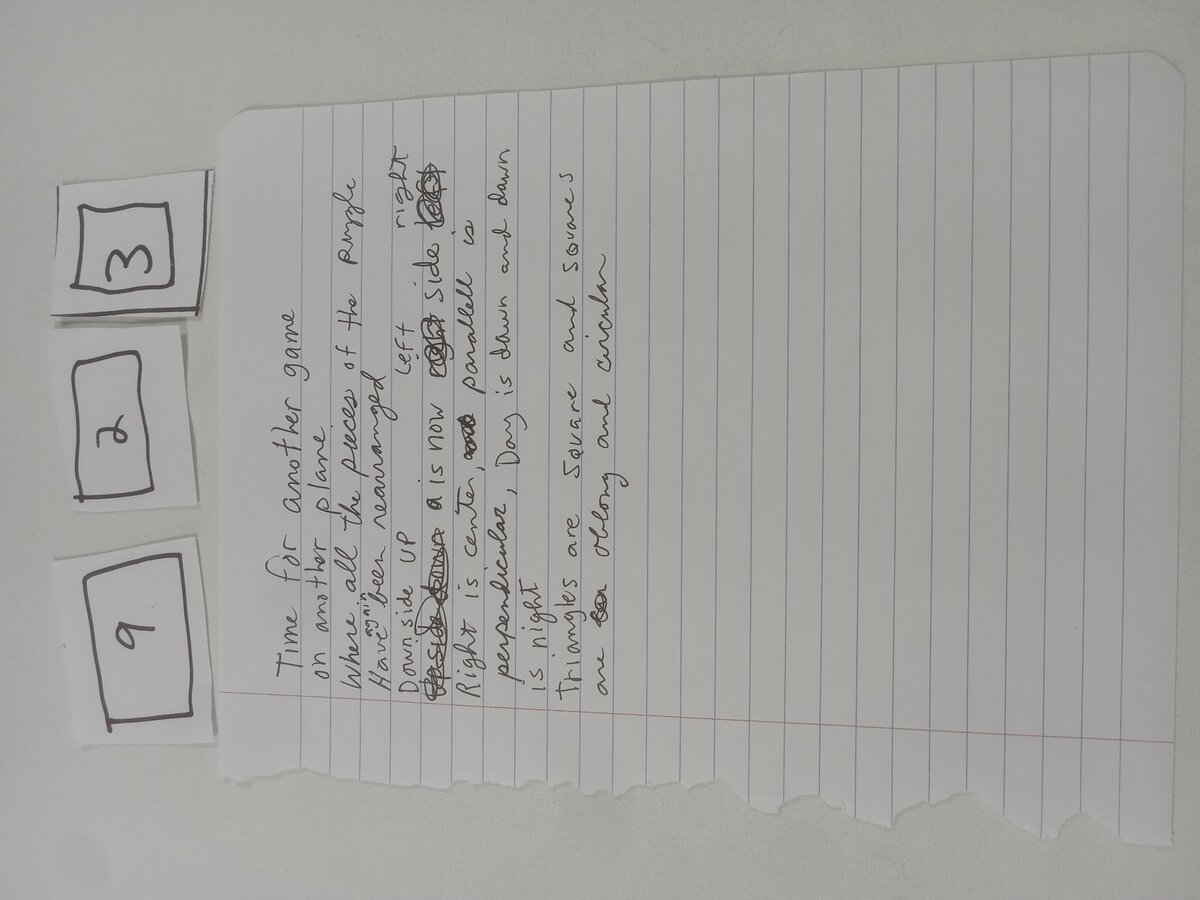 9 2 3
Time for another game
on another plane
Where all the pieces of the puzzle
Have again been rearranged
Down side UP left right
Upside down a is now right side left
Right is center, parallell is
perpendicular, Day is dawn and dawn
is night
Triangles are square and squares
are oblong and circular